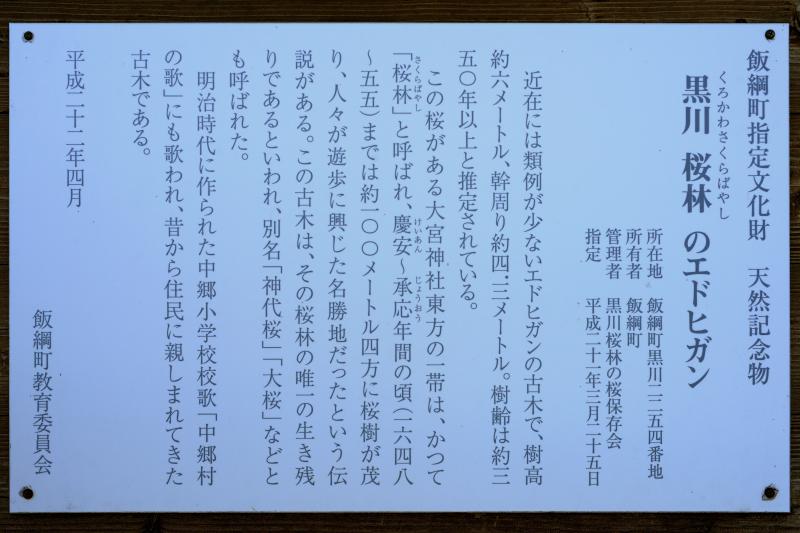 飯綱町指定文化財　天然記念物
黒川　桜林のエドヒガン
くろかわさくらばやし
所在地　飯綱町黒川一二五四番地
所有者　飯綱町
管理者　黒川桜林の桜保存会
指定　平成二十一年三月二十五日
近在には類例が少ないエドヒガンの古木で、樹高
約六メートル、幹周り約四・三メートル。樹齢は約三
五〇年以上と推定されている。
この桜がある大宮神社東方の一帯は、かつて
「桜林」と呼ばれ、慶安～承応年間の頃（一六四八
さくらばやし　けいあん　じょうおう
～五五）までは約一〇〇メートル四方に桜樹が茂
り、人々が遊歩に興じた名勝地だったという伝
説がある。この古木は、その桜林の唯一の生き残
りであるといわれ、別名「神代桜」「大桜」などと
も呼ばれた。
明治時代に作られた中郷小学校校歌「中郷村
の歌」にも歌われ、昔から住民に親しまれてきた
古木である。
平成二十二年四月
飯綱町教育委員会